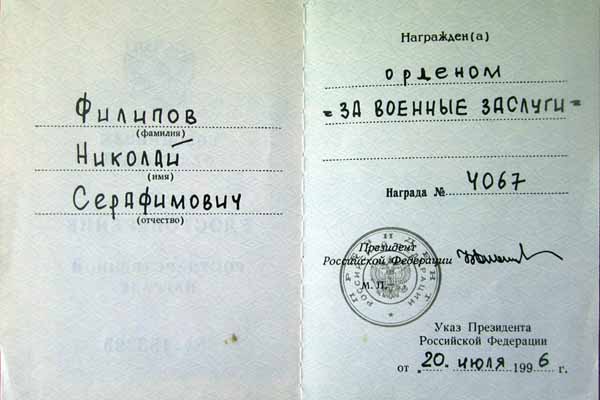 Филипов
(фамилия)
Николай
(имя)
Серафимович
(отчество)
Награжден(а)
орденом
"ЗА ВОЕННЫЕ ЗАСЛУГИ"
Награда № 4067
Президент
Российской Федерации
М. П.
Указ Президента
Российской Федерации
от "20" июля 1996 г.